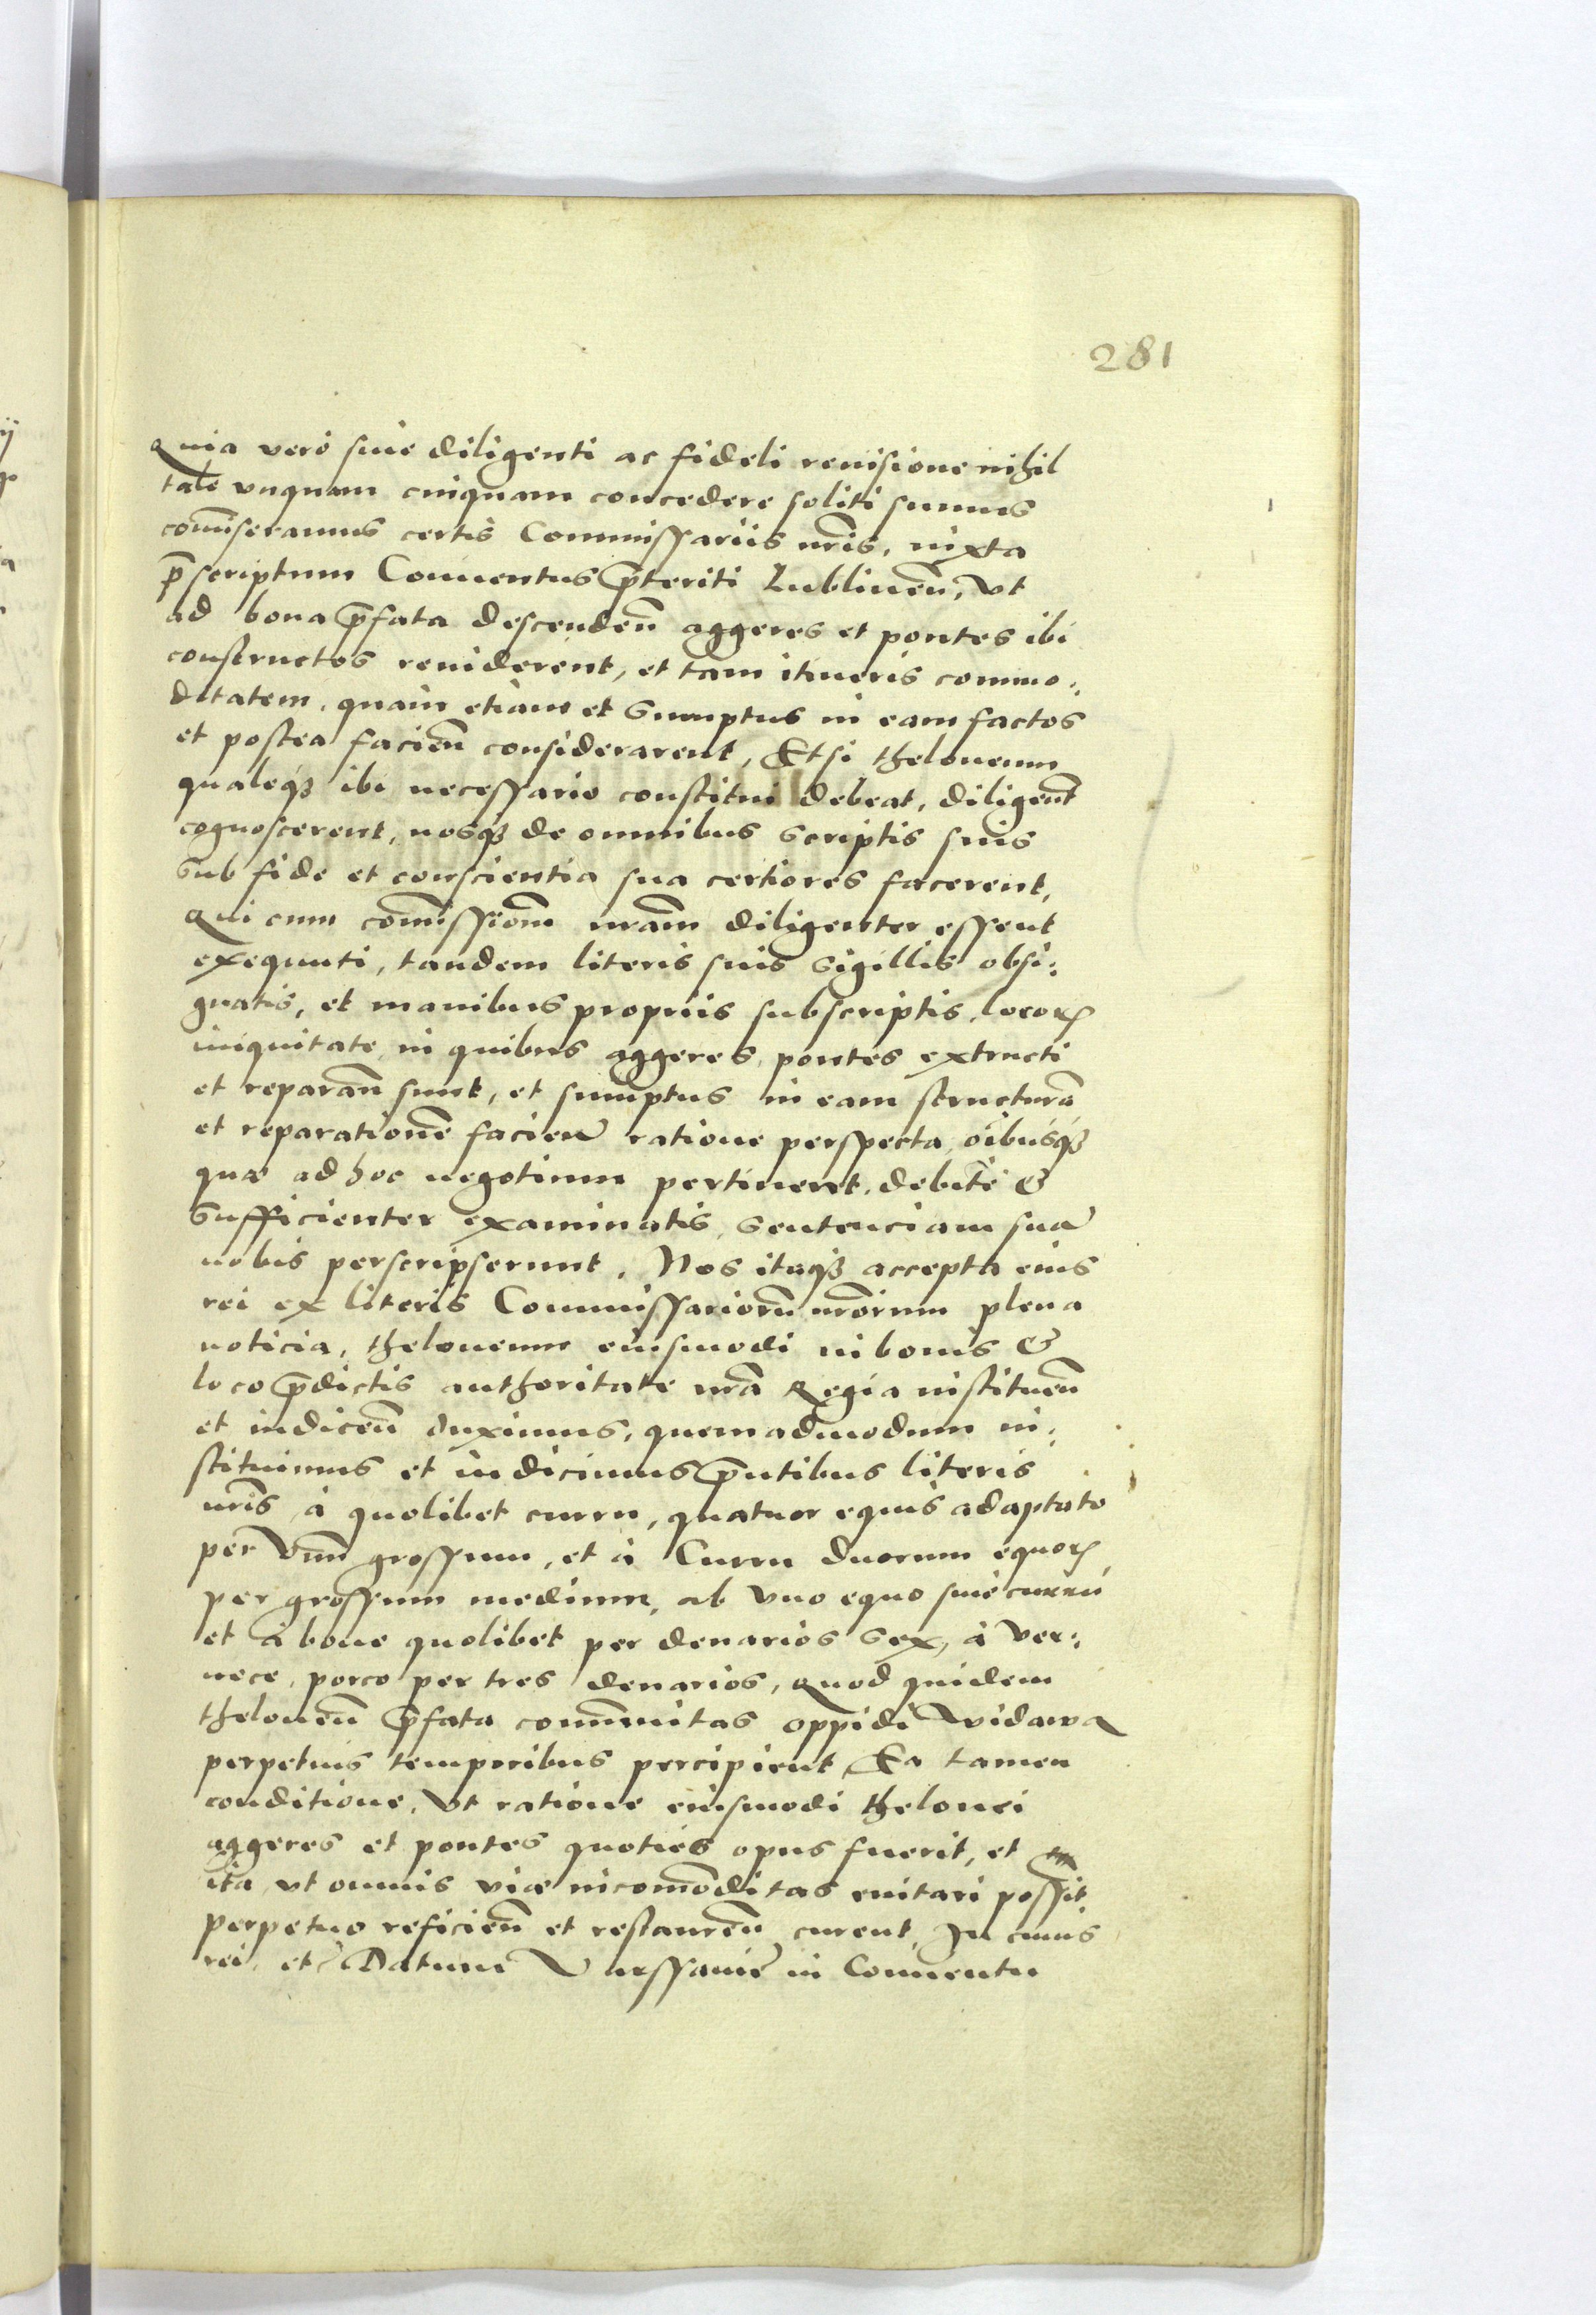 281
Quia vero sine diligenti ac fideli revisione nihil
tale unquam cuiquam concedere soliti sumus
com̄iseramus certis Commissariis nr̄is, iuxta
p̄scriptum Conventus p̄teriti Lublineñ, Vt
ad bona p̄fata descendeñ aggeres et pontes ibi
constructos reviderent, et tam itineris commo:
ditatem, quàm etiam et Sumptus in eam factos
et postea facieñ considerarent, Et si theloneum
qualeq₃ ibi necessario constitui debeat, diligenť
cognoscerent, nosq₃ de omnibus scriptis suis
Sub fide et conscientia sua certiores facerent,
Qui cum com̄issionē nr̄am diligenter essent
exequuti, tandem literis suis sigillis obsi:
gnatis, et manibus propriis subscriptis, locoꝝ
iniquitate, in quibus aggeres, pontes extructi
et reparañ sunt, et sumptus in eam structurā
et reparationē facien̄ ratione perspecta, oībusq₃
quæ ad hoc negotium pertinent, debitè &
Sufficienter examinatis, Sentenciam suā
nobis perscripserunt. Nos itaq₃ accepta eius
rei ex literis Commissariorū nr̄orum plena
noticia, theloneum eiusmodi in bonis &
loco p̄dictis authoritate nr̄a Regia instituen̄
et indiceñ duximus, quemadmodum in:
stituimus et indicimus p̄ntibus literis
nr̄is, à quolibet curru, quatuor equis adaptato
per Vnū grossum, et à Curru duorum equoꝝ
per grossum medium, ab Vno equo sine curru
et à bove quolibet per denarios Sex, à Ver:
vece, porco per tres denarios, Quod quidem
theloneū p̄fata com̄unitas oppidi Widawa
perpetuis temporibus percipient, Ea tamen
conditione, Vt ratione eiusmodi thelonei
aggeres et pontes quoties opus fuerit, et
ita, vt omnis viæ incom̄oditas evitari possit
perpetuo reficieñ et restaureñ curent. In cuius
rei, etc̄ Datum Varssaviē in Conventu